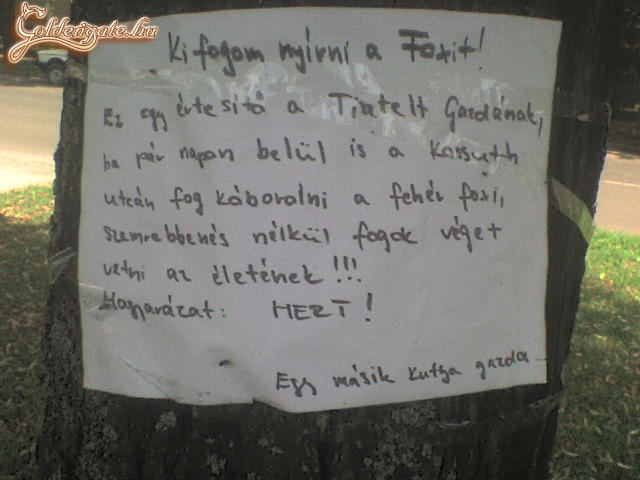 Goldengate.hu
Ki fogom nyírni a Foxit!
Ez egy értesítő a Tisztelt Gazdának,
ha pár napon belül is a Kossuth
utcán fog kóborolni a fehér foxi,
szemrebbenés nélkül fogok véget
vetni az életének!!!
Magyarázat: MERT!
Egy másik kutya gazda...